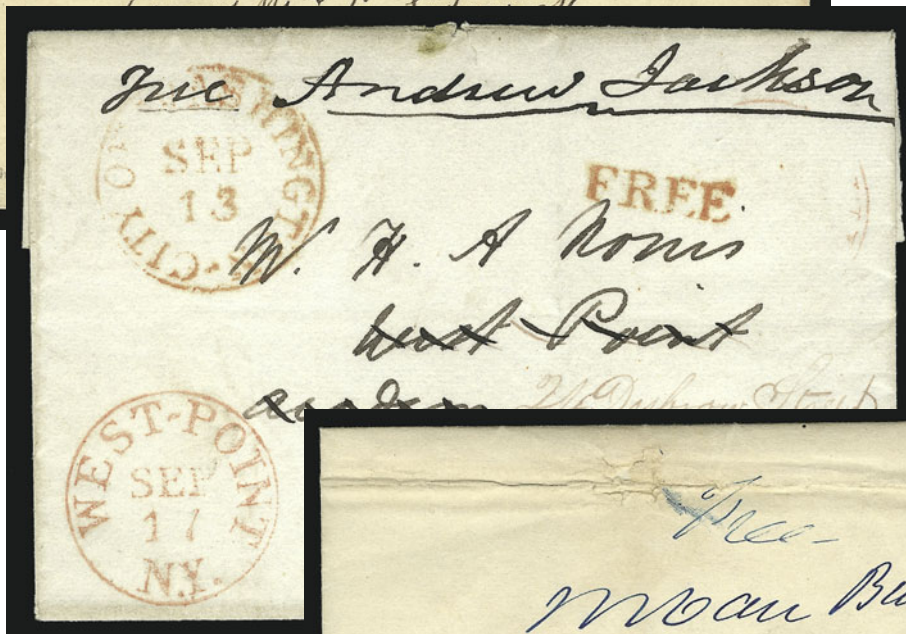 Free Andrew Jackson
CITY OF WASHINGTON
SEP
13
FREE
W. H. A Norris
West Point
WEST-POINT
SEP
17
N.Y.
Free
MVan Bu